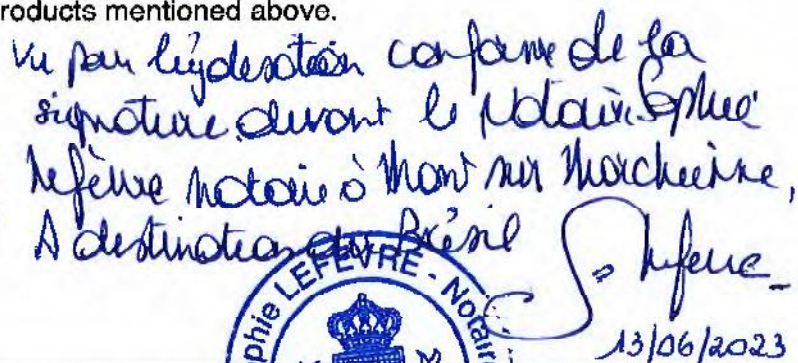 roducts mentioned above.
Vu pour légalisation conforme de la
signature devant le Notaire Sophie
Lefèvre Notaire à Mont sur Marchienne,
A destination du Brésil
S. Lefevre
phie LEFEVRE - Notaire
13/06/2023